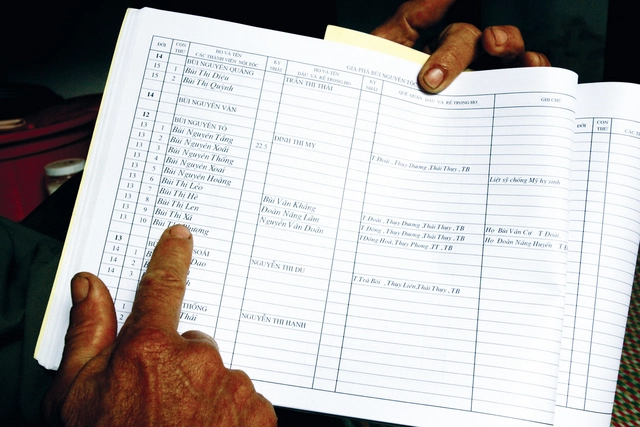 GIA PHẢ BÙI NGUYÊN TỘ
ĐỜI CON THỨ HỌ VÀ TÊN CÁC THÀNH VIÊN NỘI TỘC KỴ NHẬT HỌ VÀ TÊN DÂU VÀ RỂ TRONG HỌ KỴ NHẬT QUÊ QUÁN, DÂU VÀ RỂ TRONG HỌ GHI CHÚ
14 BÙI NGUYÊN QUẢNG TRẦN THỊ THÁI
15 1 Bùi Thị Diệu
15 2 Bùi Thị Quỳnh
14 BÙI NGUYÊN VÂN
12 BÙI NGUYÊN TỘ 22.5 ĐINH THỊ MỲ T.Đoài , Thụy Dương ,Thái Thụy ,TB
13 1 Bùi Nguyên Tảng
13 2 Bùi Nguyên Xoài Liệt sỹ chống Mỹ hy sinh
13 3 Bùi Nguyên Thống
13 4 Bùi Nguyên Xoai
13 5 Bùi Nguyên Hoằng
13 6 Bùi Thị Léo
13 7 Bùi Thị Hé Bùi Văn Khằng T.Đoài , Thụy Dương ,Thái Thụy ,TB Họ Bùi Văn Cư T Đoài
13 8 Bùi Thị Len Đoàn Năng Lãm T.Đông , Thụy Dương ,Thái Thụy ,TB Họ Đoàn Năng Huyên T
13 9 Bùi Thị Xá Nguyễn Văn Đoàn T.Đông Hoà , Thụy Phong ,TT ,TB
13 10 Bùi
13 NGUYỄN THỊ DU T.Trà Bôi , Thụy Liên,Thái Thụy ,TB
14 1
14 2
14 3
THỐNG NGUYỄN THỊ HẠNH
1 Thái
2
ĐỜI CON THỨ